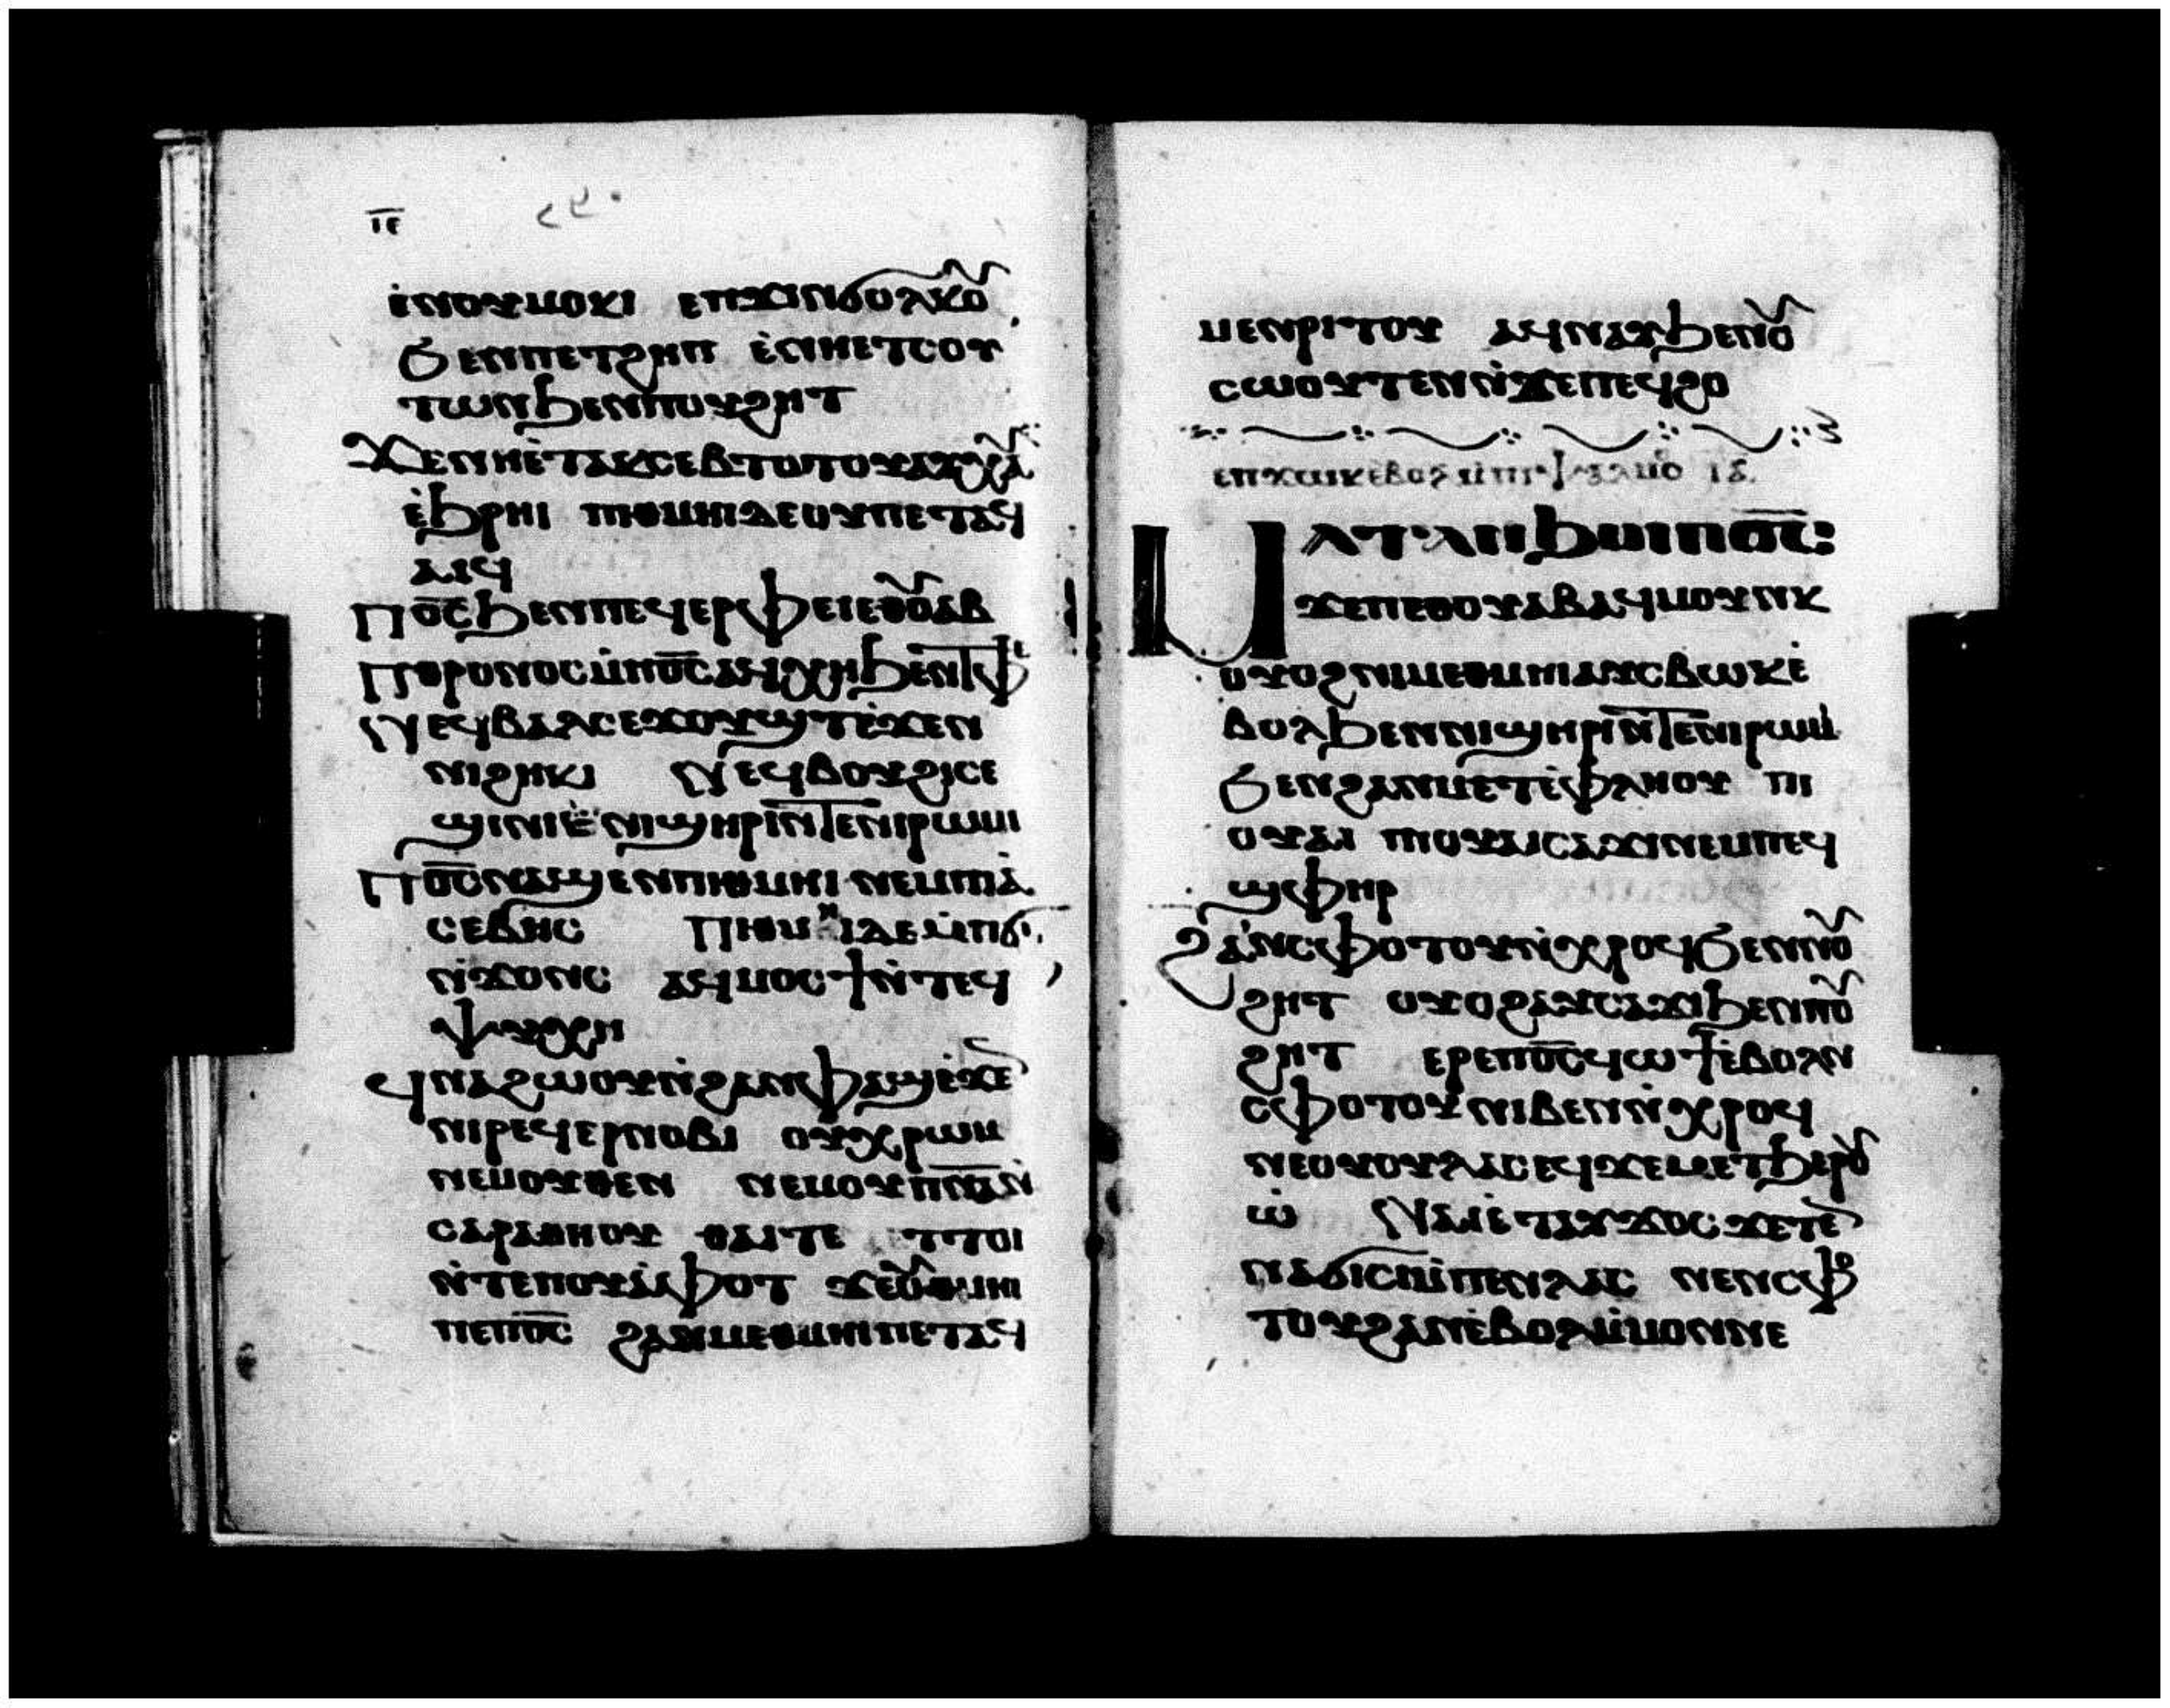 ⲓⲉ
ⲛ̇ⲟⲩⲙⲟⲕⲓ ⲉⲡϫⲓⲛϭⲟⲗⲕⲟⲩ
ϧⲉⲛⲡⲉⲧϩⲏⲡ ⲉ̇ⲛⲏⲉⲧⲥⲟⲩ
ⲧⲱⲛϧⲉⲛⲡⲟⲩϩⲏⲧ
ϫⲉⲛⲏⲉ̇ⲧⲁⲕⲥⲉⲃⲧⲟⲧⲟⲩⲁⲩⲭⲁ
ⲉ̇ϧⲣⲏⲓ ⲡⲓⲑⲙⲏⲓⲇⲉⲟⲩⲡⲉⲧⲁϥ
ⲁⲓϥ
ⲡⲟ̅ⲥ̅ϧⲉⲛⲡⲉϥⲉⲣⲫⲉⲓⲉⲑⲟⲩⲁⲃ
ⲡⲑⲣⲟⲛⲟⲥⲙ̇ⲡⲟ̅ⲥ̅ⲁϥⲭⲏϧⲉⲛⲧⲫⲉ
ⲛⲉϥⲃⲁⲗⲥⲉϫⲟⲩϣⲧⲉ̇ϫⲉⲛ
ⲛⲓϩⲏⲕⲓ ⲛⲉϥⲃⲟⲩϩⲓⲥⲉ
ϣⲓⲛⲓⲉ̇ⲛⲓϣⲏⲣⲓⲛ̇ⲧⲉⲛⲓⲣⲱⲙⲓ
ⲡⲟ̅ⲥ̅ⲛⲁϣⲉⲛⲡⲓⲑⲙⲏⲓ ⲛⲉⲙⲡⲓⲁ̇
ⲥⲉⲃⲏⲥ ⲡⲓⲑⲙⲏⲓⲇⲉⲙ̇ⲡⲓϭⲓ
ⲛ̇ϫⲟⲛⲥ ⲁϥⲙⲟⲥϯⲛ̇ⲧⲉϥ
ⲯⲩⲭⲏ
ϥⲛⲁϩⲱⲟⲩⲛ̇ϩⲁⲛⲫⲁϣⲉ̇ϫⲉ
ⲛⲓⲣⲉϥⲉⲣⲛⲟⲃⲓ ⲟⲩⲭⲣⲱⲙ
ⲛⲉⲙⲟⲩⲑⲉⲛ ⲛⲉⲙⲟⲩⲡ̅ⲛ̅ⲁ̅ⲛ̇
ⲥⲁⲣⲁⲑⲏⲟⲩ ⲑⲁⲓⲧⲉ ⲧⲧⲟⲓ
ⲛ̇ⲧⲉⲡⲟⲩⲁ̇ⲫⲟⲧ ϫⲉⲟⲩⲑⲙⲏⲓ
ⲡⲉⲡⲟ̅ⲥ̅ ϩⲁⲛⲙⲉⲑⲙⲏⲓⲡⲉⲧⲁϥ
ⲙⲉⲛⲣⲓⲧⲟⲩ ⲁϥⲛⲁⲩϧⲉⲛⲟⲩ
ⲥⲱⲟⲩⲧⲉⲛⲛ̇ϫⲉⲡⲉϥϩⲟ
ⲉⲡϫⲱⲕⲉ̇ⲃⲟⲗ ⲙ̇ⲡⲓⲯⲁⲗⲙⲟ ⲓⲇ
ⲙⲁⲧⲁⲛϧⲟⲓⲡⲟ̅ⲥ̅:
ϫⲉⲡⲉⲑⲟⲩⲁⲃⲁϥⲙⲟⲩⲛⲕ
ⲟⲩⲟϩⲛⲓⲙⲉⲑⲙⲏⲓⲁⲩⲥⲃⲱⲕⲉ̇
ⲃⲟⲗϧⲉⲛⲛⲓϣⲏⲣⲓⲛ̇ⲧⲉⲛⲓⲣⲱⲙⲓ
ϧⲉⲛϩⲁⲛⲙⲉⲧⲉ̇ⲫⲗⲏⲟⲩ ⲡⲓ
ⲟⲩⲁⲓ ⲡⲓⲟⲩⲁⲓⲥⲁϫⲓⲛⲉⲙⲡⲉϥ
ϣⲫⲏⲣ
ϩⲁⲛⲥⲫⲟⲧⲟⲩⲛ̇ⲭⲣⲟϥϧⲉⲛⲡⲟⲩ
ϩⲏⲧ ⲟⲩⲟϩⲁⲩⲥⲁϫⲓϧⲉⲛⲡⲟⲩ
ϩⲏⲧ ⲉⲣⲉⲡⲟ̅ⲥ̅ϥⲱϯⲉ̇ⲃⲟⲗⲛ
ⲥⲫⲟⲧⲟⲩⲛⲓⲃⲉⲛⲛ̇ⲭⲣⲟϥ
ⲛⲉⲟⲩⲟⲩⲗⲁⲥⲉϥϫⲉⲙⲉⲧϧⲉⲣⲟⲩ
ⲱ̇ ⲛⲁⲓⲉ̇ⲧⲁⲩϫⲟⲥϫⲉⲧⲉ
ⲛⲁϭⲓⲥⲓⲙ̇ⲡⲉⲛⲗⲁⲥ ⲛⲉⲛⲥⲫⲟ
ⲧⲟⲩϩⲁⲛⲉ̇ⲃⲟⲗⲙ̇ⲙⲟⲛⲛⲉ